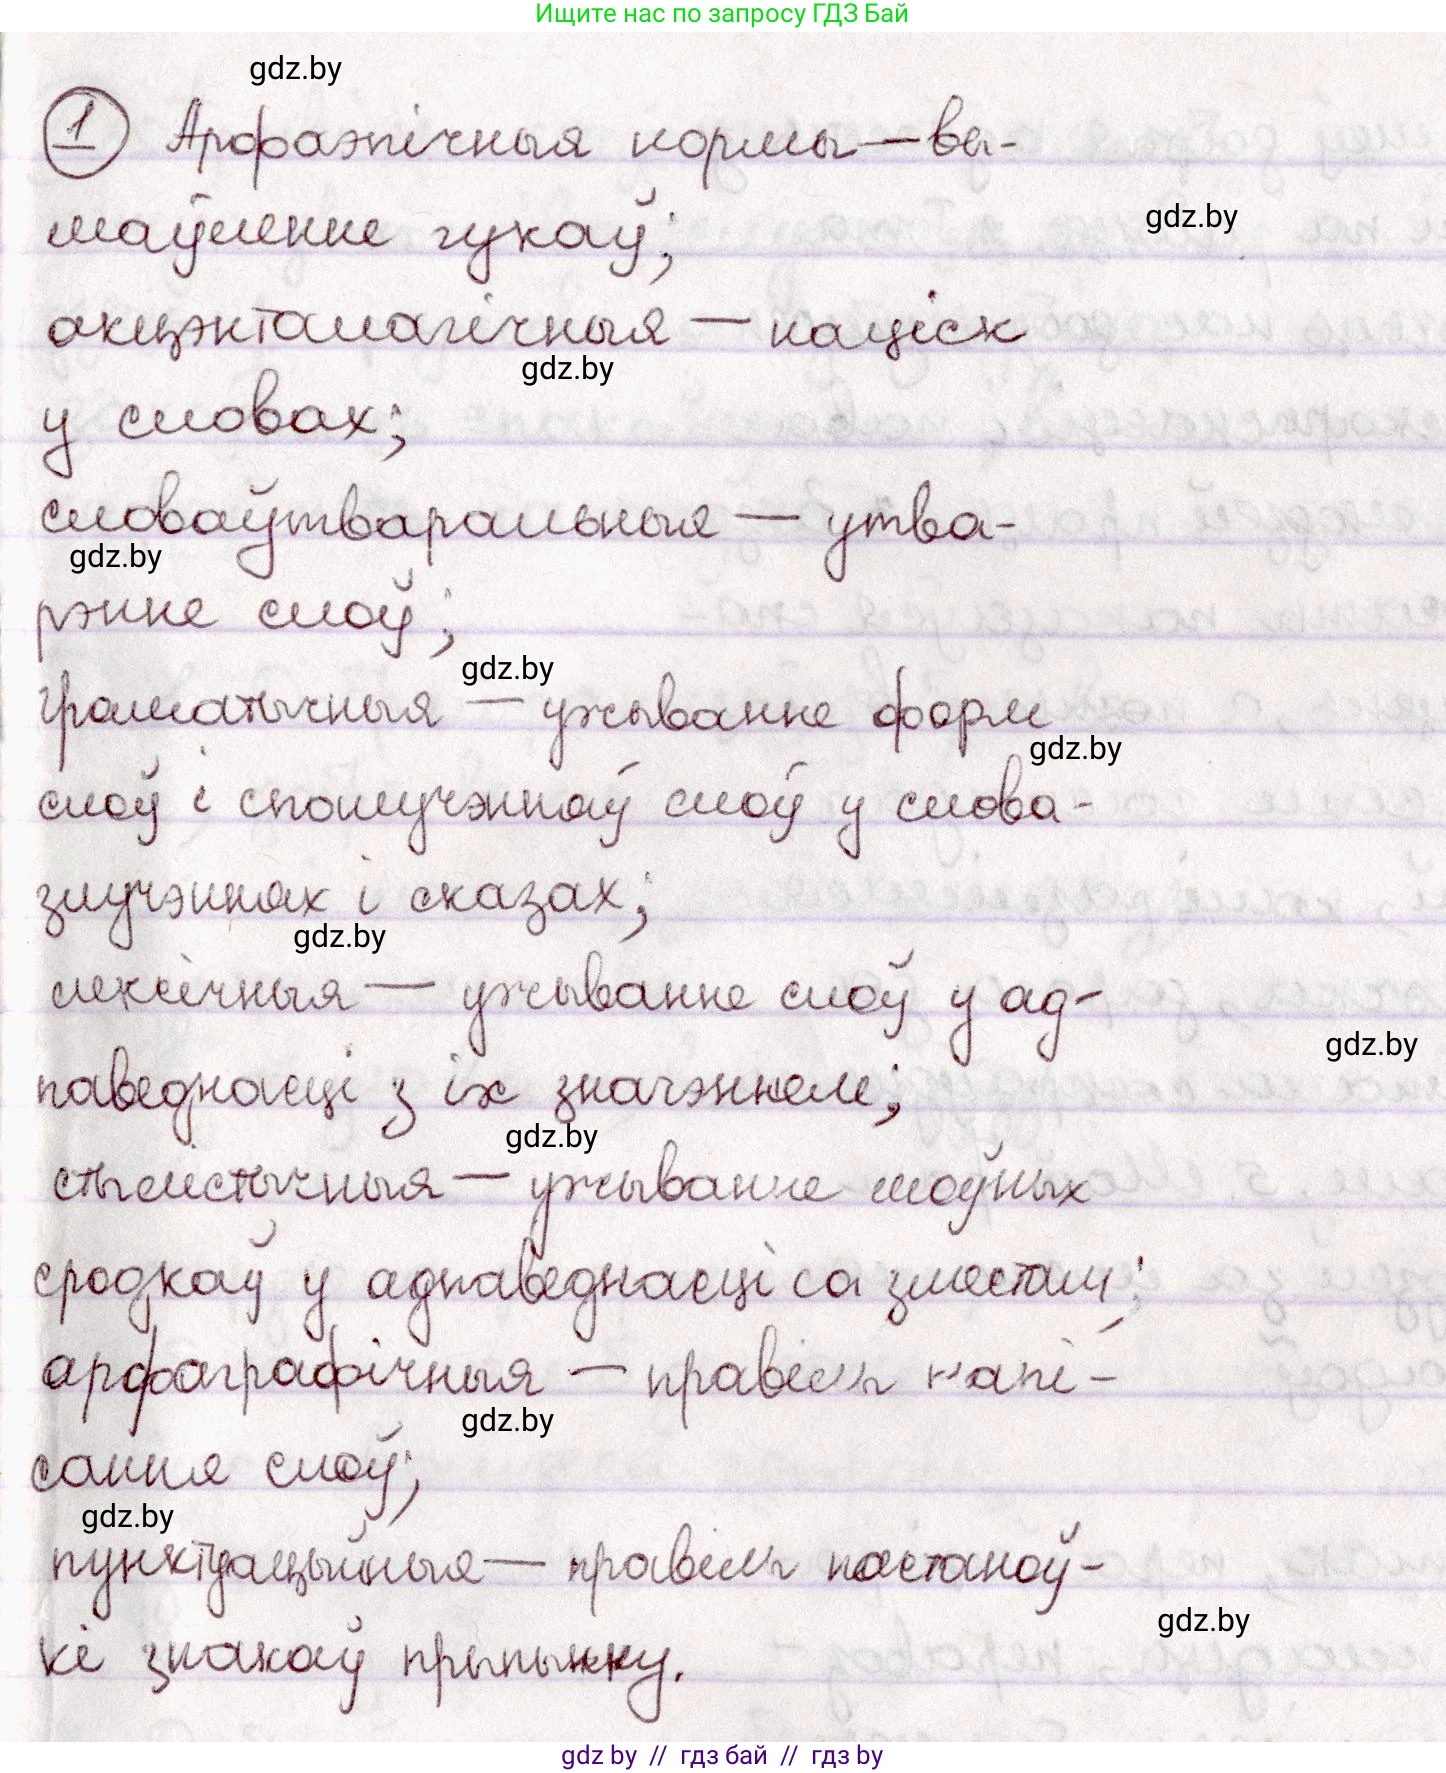 Ищите нас по запросу ГДЗ Бай
gdz.by
1 Арфаэпічныя нормы — вы-
маўленне гукаў;
gdz.by
акцэнталагічныя — націск
gdz.by
у словах;
словаўтваральныя — утва-
gdz.by
рэнне слоў;
gdz.by
граматычныя — ужыванне форм
gdz.by
слоў і спалучэнняў слоў у слова-
злучэннях і сказах;
gdz.by
лексічныя — ужыванне слоў у ад-
gdz.by
паведнасці з іх значэннем;
gdz.by
стылістычныя — ужыванне моўных
сродкаў у адпаведнасці са зместам;
арфаграфічныя — правілы напі-
gdz.by
сання слоў;
gdz.by
пунктуацыйныя — правілы пастаноў-
gdz.by
кі знакаў прыпынку.
gdz by // гдз бай // гдз by